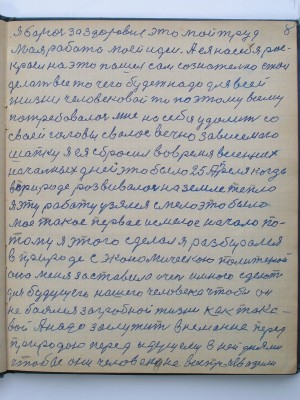 8
я вам за здоровие это мой труд
моя работа мои идеи. А я на себя рас
крыл на это пошел сам сознательно стал
делать все то чего будет надо для всей
жизни человековой то поэтому всему
потребовалося мне но себя удалить со
своей головы свалося вечно зависемаго
шапку я ея сбросил вовремя весенних
началных дней это было 25 Апреля когда
в природе розвивалося на земле тепло
я эту работу узялся смело это было
мое такое первае и смелое начало по-
тому я этого сделал я разбирался
в природе с экономическою политикой
она меня заставила очен много сделать
для будущего нашего человека чтобы он
не боялся загробной жизни как тако-
вой А надо заслужит внемание перед
природою перед идущеми в ней днями
чтобы они человека не встречали